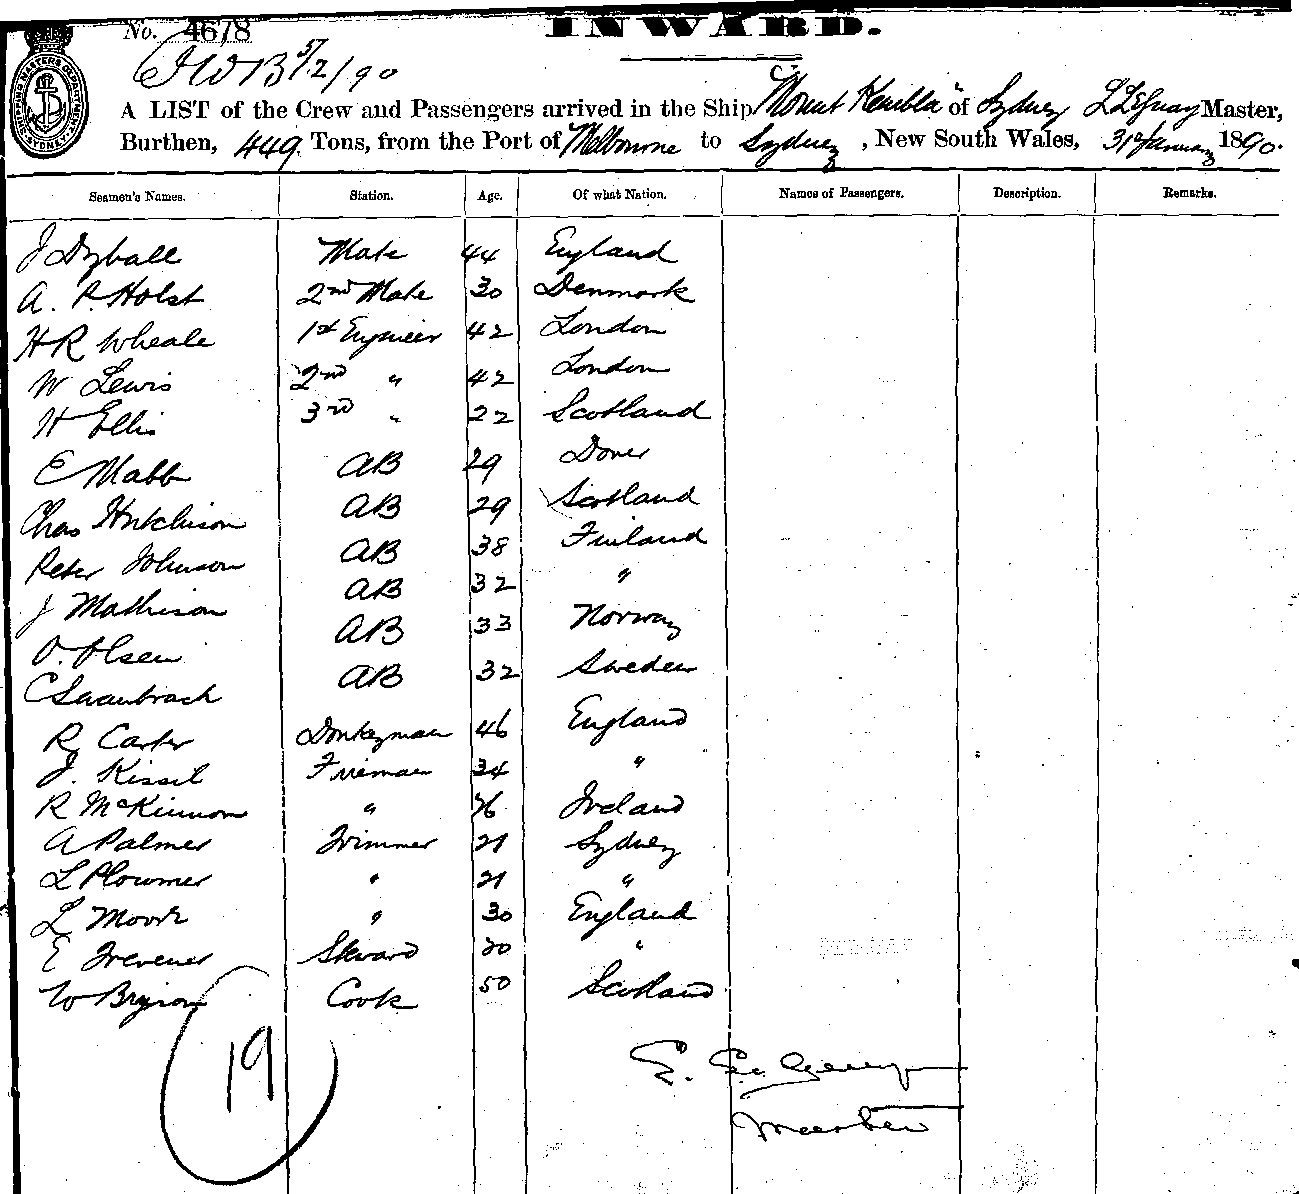 No. 4678
INWARD.
SHIPPING MASTERS DEPARTMENT SYDNEY
A LIST of the Crew and Passengers arrived in the Ship "Mount Kembla" of Sydney Master,
Burthen, 449 Tons, from the Port of Melbourne to Sydney, New South Wales, 31st January 1890.
Seamen's Names. Station. Age. Of what Nation. Names of Passengers. Description. Remarks.
J Dyball Mate 44 England
A. P. Holst 2nd Mate 30 Denmark
H R Wheale 1st Engineer 42 London
W Lewis 2nd " 42 London
H Ellis 3rd " 22 Scotland
E Mabb AB 29 Dover
Chas Hutchison AB 29 Scotland
Peter Johnson AB 38 Finland
J Mathison AB 32 "
O. Olsen AB 33 Norway
C AB 32 Sweden
R Carter Donkeyman 46 England
J. Kissil Fireman 34 "
R McKinnon " Ireland
A Palmer Trimmer 21 Sydney
L Plowmer " 21 "
L Moore " 30 England
E Trevener Steward 20 "
W Bryson Cook 50 Scotland
19
E.
Master